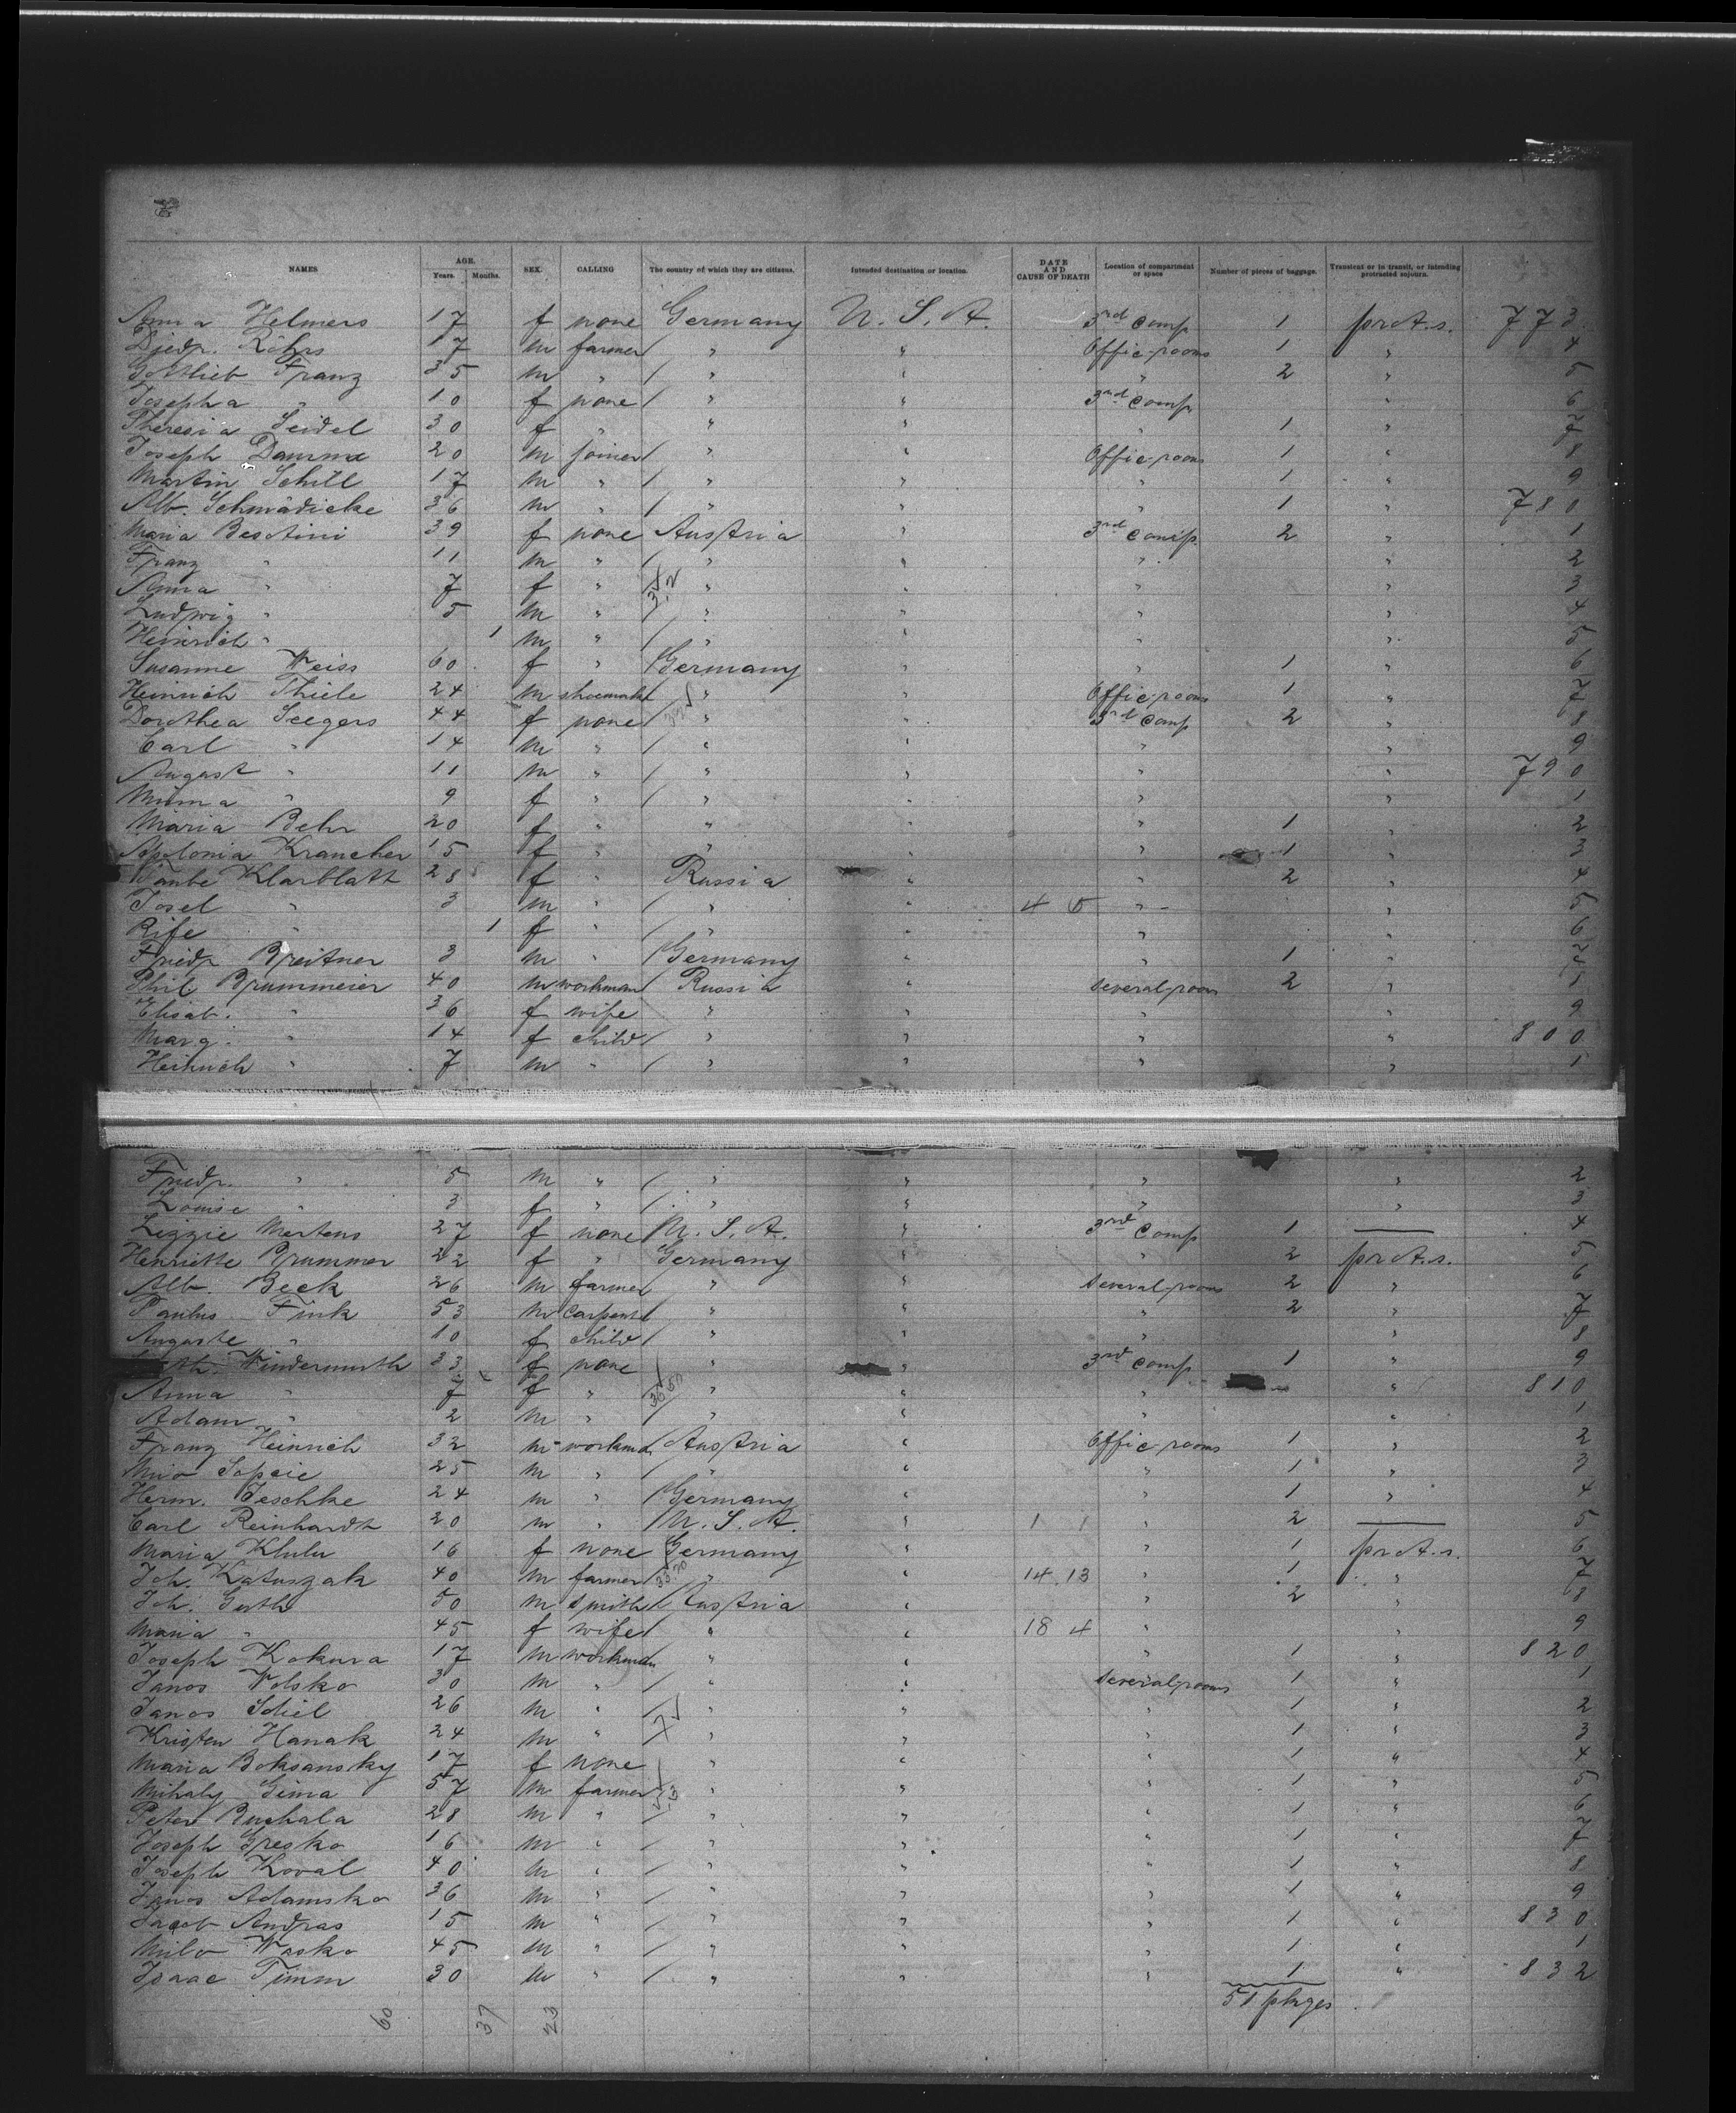 NAMES AGE. Years. Months. SEX. CALLING The country of which they are citizens. Intended destination or location. DATE AND CAUSE OF DEATH Location of compartment or space Number of pieces of baggage. Transient or in transit, or intending protracted sojourn.
Anna Helmers 17 f none Germany U. S. A. 3rd Comp 1 protr.s. 773
Diedr. Röhrs 17 m farmer " " Offic-rooms 1 " 4
Gottlieb Franz 35 m " " " " 2 " 5
Josepha " 10 f none " " 3rd Comp " 6
Theresia Seidel 30 f " " " " 1 " 7
Joseph Damma 20 m joiner " " Offic-rooms 1 " 8
Martin Schill 17 m " " " " 1 " 9
Alb. Schmädicke 36 m " " " " 1 " 780
Maria Bestini 39 f none Austria " 3rd Comp. 2 " 1
Franz " 11 m " " " " " 2
Anna " 7 f " " " " " 3
Ludwig " 5 m " " " " " 4
Heinrich " 1 m " " " " " 5
Susanne Weiss 60 f " Germany " " 1 " 6
Heinrich Thiele 24 m shoemak " " Offic-rooms 1 " 7
Dorothea Seegers 44 f none " " 3rd Comp 2 " 8
Carl " 14 m " " " " " 9
August " 11 m " " " " " 790
Minna " 9 f " " " " " 1
Maria Behr 20 f " " " " 1 " 2
Apolonia Krancher 15 f " " " " 1 " 3
Taube Klarblatt 28 f " Russia " " 2 " 4
Josel " 3 m " " " 4 6 " " 5
Rife " 1 f " " " " " 6
Friedr Breitner 3 m " Germany " " 1 " 7
Phil Brummeier 40 m workman Russia " several-room 2 " 1
Elisab. " 36 f wife " " " " 9
Marg. " 14 f child " " " " 800
Heinrich " 7 m " " " " 1
Friedr. " 5 m " " " " " 2
Louise " 3 f " " " " " 3
Lizzie Mertens 27 f none U. S. A. " 3rd Comp 1 — 4
Henriette Brummer 22 f " Germany " " 2 protr.s. 5
Alb. Beck 26 m farmer " " several-rooms 2 " 6
Paulus Fink 53 m carpent " " " 2 " 7
Auguste " 10 f child " " " " 8
Windermuth 33 f none " " 3rd Comp 1 " 9
Anna " 7 f " " " " " 810
Adam " 2 m " " " " " 1
Franz Heinrich 32 m workma Austria " Offic-rooms 1 " 2
Miio Sopcic 25 m " " " " 1 " 3
Herm. Jeschke 24 m " Germany " " 1 " 4
Carl Reinhardt 20 m " U. S. A. " 1 1 " 2 — 5
Maria Klulu 16 f none Germany " " 1 protr.s. 6
Joh. Katuszak 40 m farmer " " 14.13 " 1 " 7
Joh. Gerth 50 m smith Austria " " 2 " 8
Maria " 45 f wife " " 18 4 " " 9
Joseph Kokura 17 m workman " " " 1 " 820
Janos Wolsko 30 m " " " several-rooms 1 " 1
Janos Schiel 26 m " " " " 1 " 2
Kristen Hanak 24 m " " " " 1 " 3
Maria Boksansky 17 f none " " " 1 " 4
Mihaly Gima 57 m farmer " " " 1 " 5
Peter Buchala 28 m " " " " 1 " 6
Joseph Gresko 16 m " " " " 1 " 7
Joseph Koval 40 m " " " " 1 " 8
Janos Adamsko 36 m " " " " 1 " 9
Jacob Andras 15 m " " " " 1 " 830
Milo Wasko 45 m " " " " 1 " 1
Isaac Timm 30 m " " " " 1 " 832
51 pkges
60 37 23